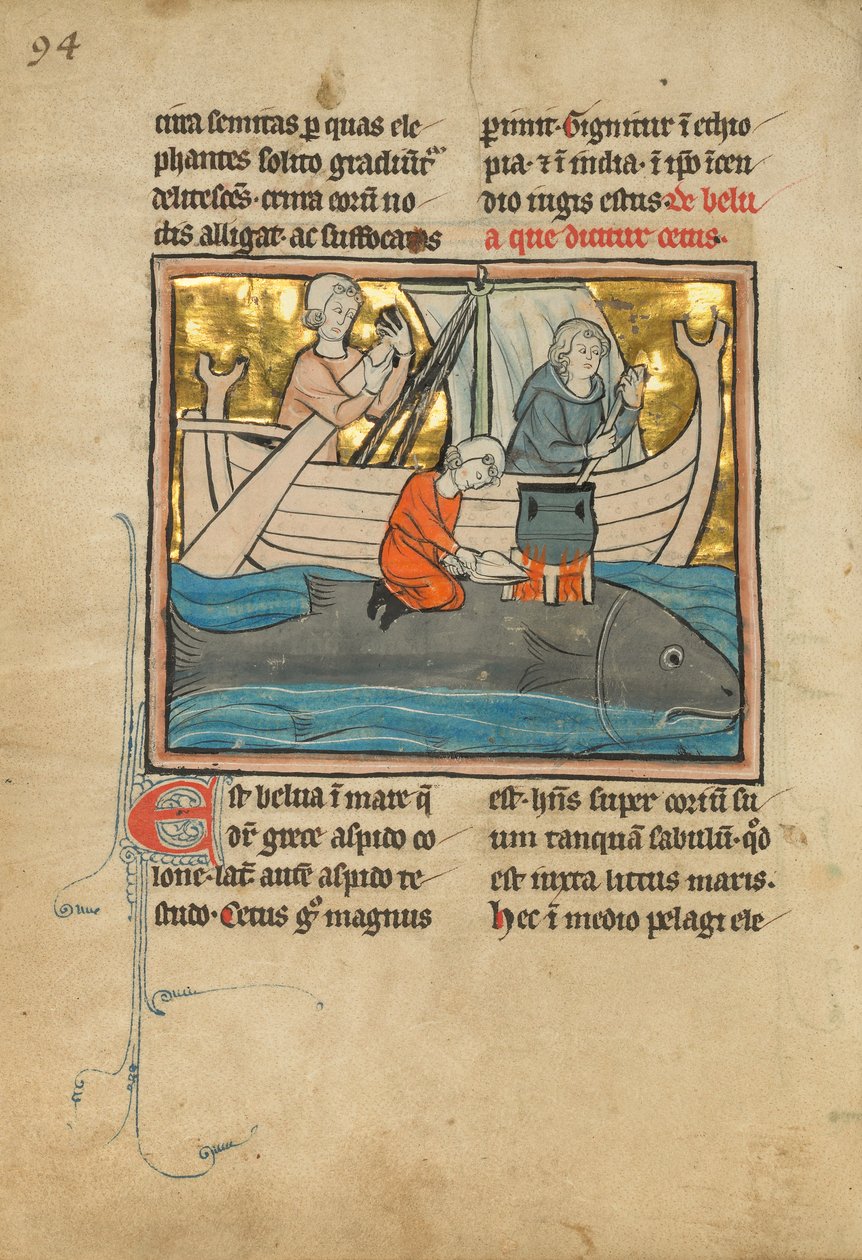 94
circa semitas ꝑ quas ele
phantes solito gradiūtur
delitescēs· crura eorū no
dis alligat· ac suffocatos
ꝑimit· Gignitur ī ethio
pia· ⁊ ī india· ī ip̄o īcen
dio iugis estus· de belu
a que dicitur cetus·
Est belua ī mare q̄
dr̄ grece aspido co
lone· lat̄ autē aspido te
studo· Cetus gͦ magnus
est· hn̄s super coriū su
um tanquā sabulū· qͦd
est iuxta littus maris.
Hec ī medio pelagi ele